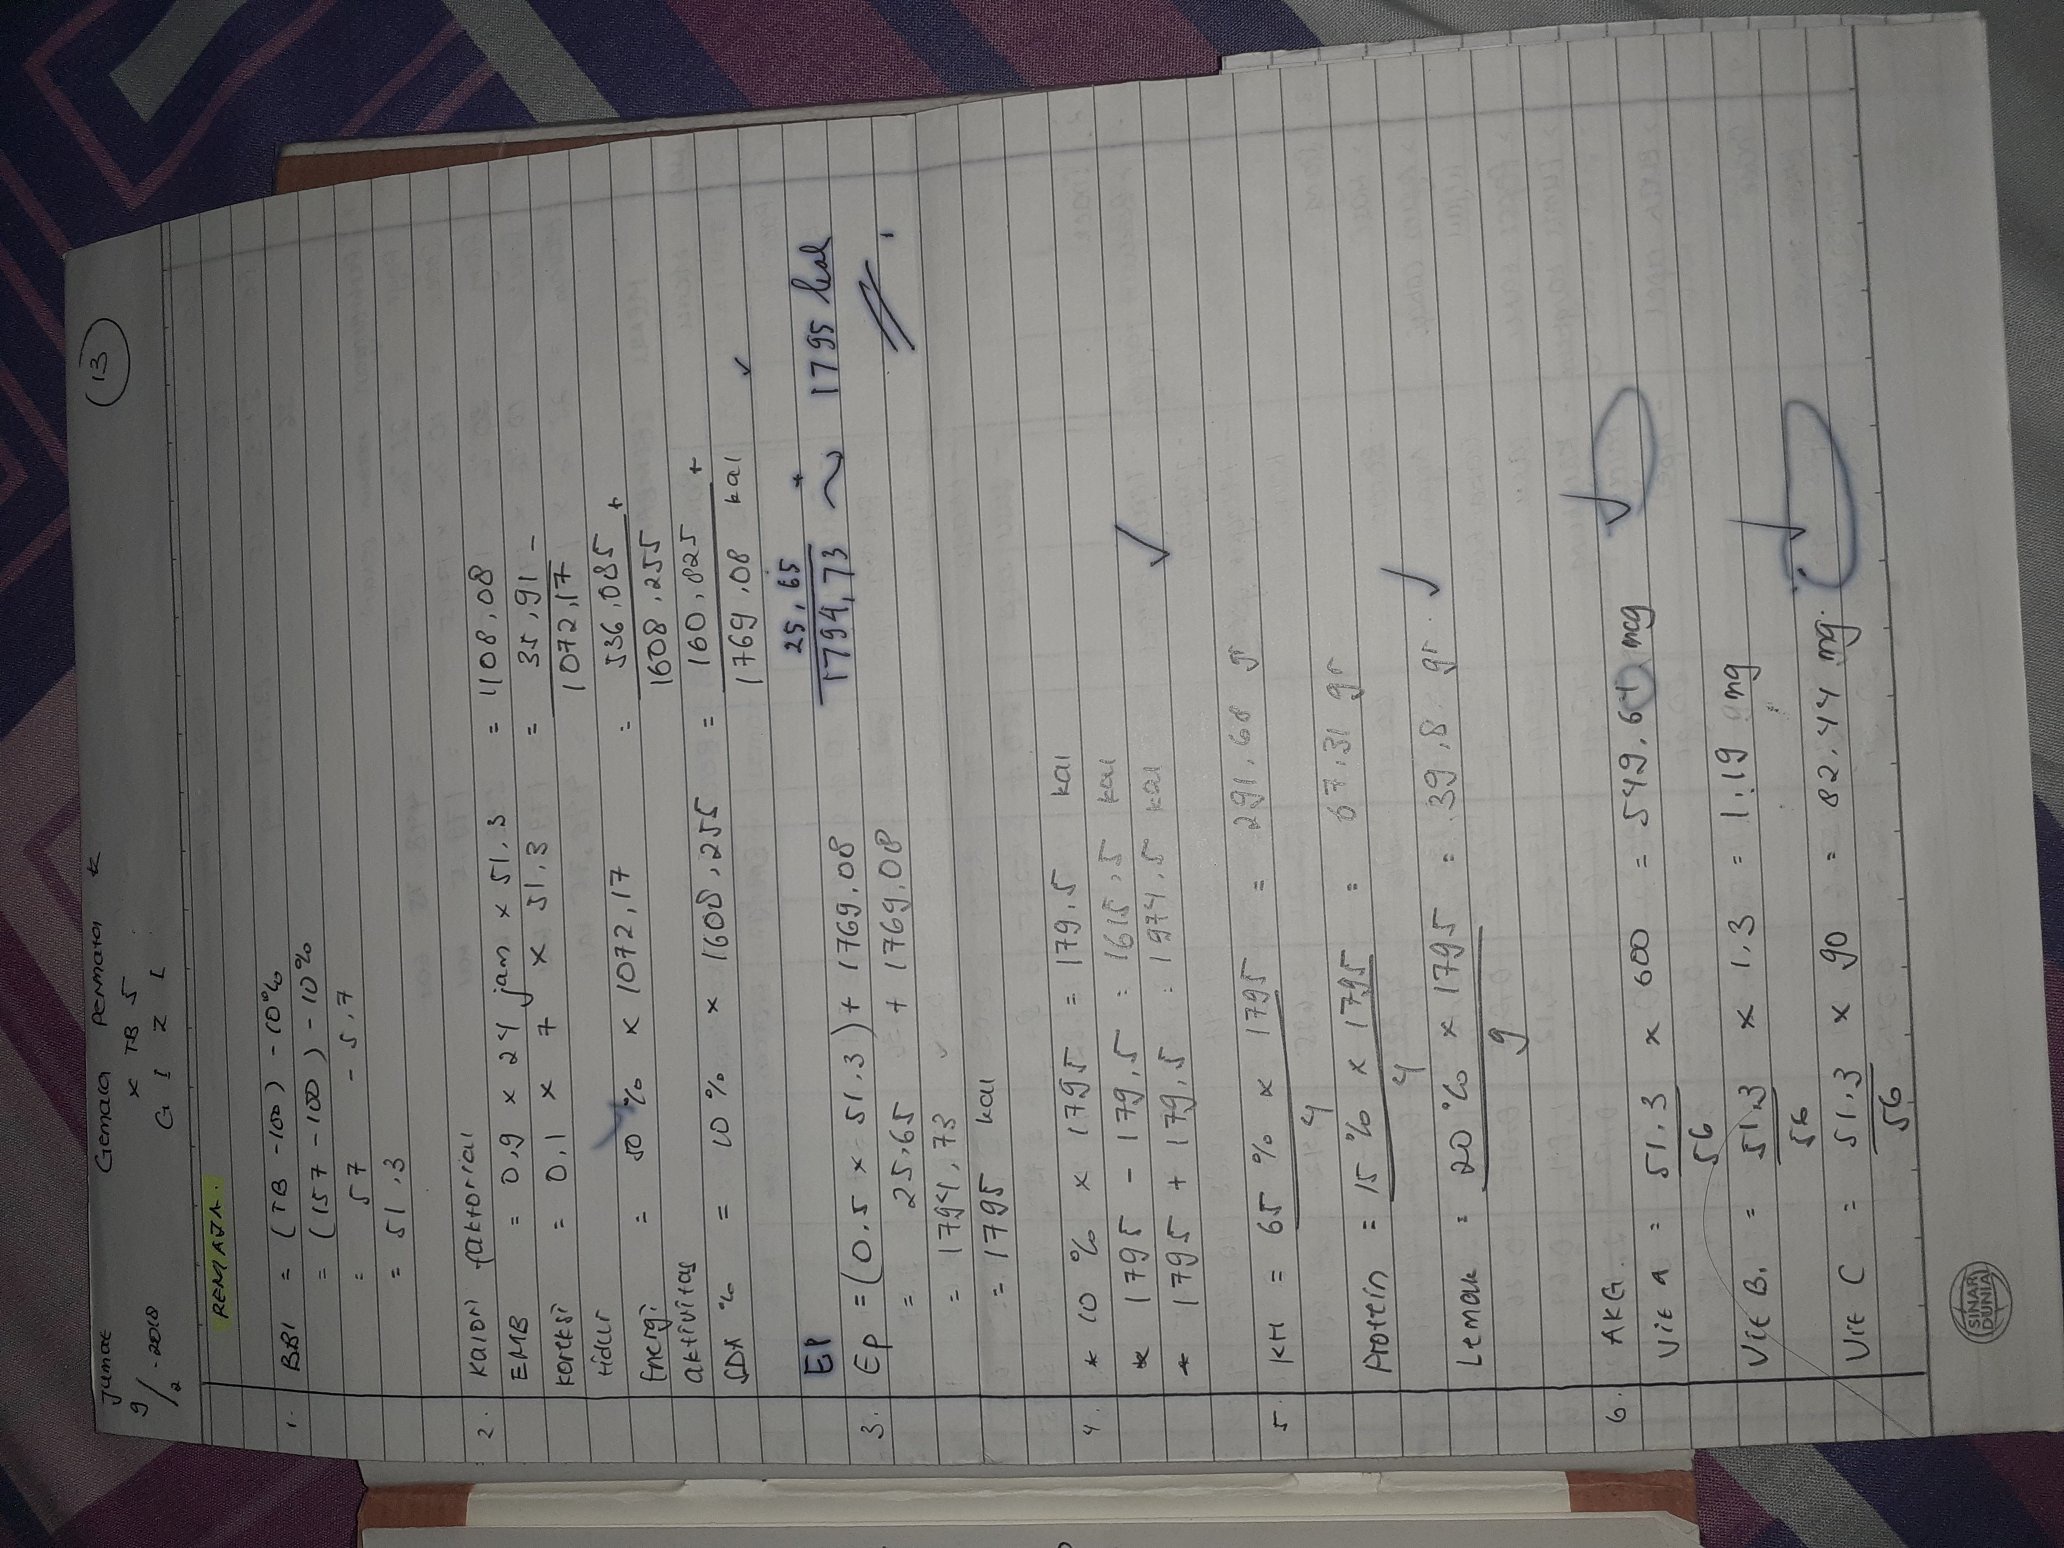 Jumat Gemala Permator k (13)
9/2 - 2018 X TB 5
G I Z I
REMAJA.
1. BBI = (TB - 100) - 10%
= (157 - 100) - 10%
= 57 - 5,7
= 51,3
2. Kalori faktorial
EMB = 0,9 x 24 jam x 51,3 = 1108,08
Koreksi = 0,1 x 7 x 51,3 = 35,91 -
tidur 1072,17
Energi = 50 % x 1072,17 = 536,085 +
aktivitas 1608,255
SDA % = 10 % x 1608,255 = 160,825 +
1769,08 kal
25,65 +
EP 1794,73 ~ 1795 kal
3. Ep = (0,5 x 51,3) + 1769,08
= 25,65 + 1769,08
= 1794,73
= 1795 kal
4. * 10 % x 1795 = 179,5 kal
* 1795 - 179,5 = 1615,5 kal
* 1795 + 179,5 = 1974,5 kal
5. KH = 65 % x 1795 = 291,68 gr
4
Protein = 15 % x 1795 = 67,31 gr
4
Lemak = 20 % x 1795 = 39,8 gr
9
6. AKG
Vit A = 51,3 x 600 = 549,64 mcg
56
Vit B1 = 51,3 x 1,3 = 1,19 mg
56
Vit C = 51,3 x 90 = 82,44 mg.
56
SINAR
DUNIA